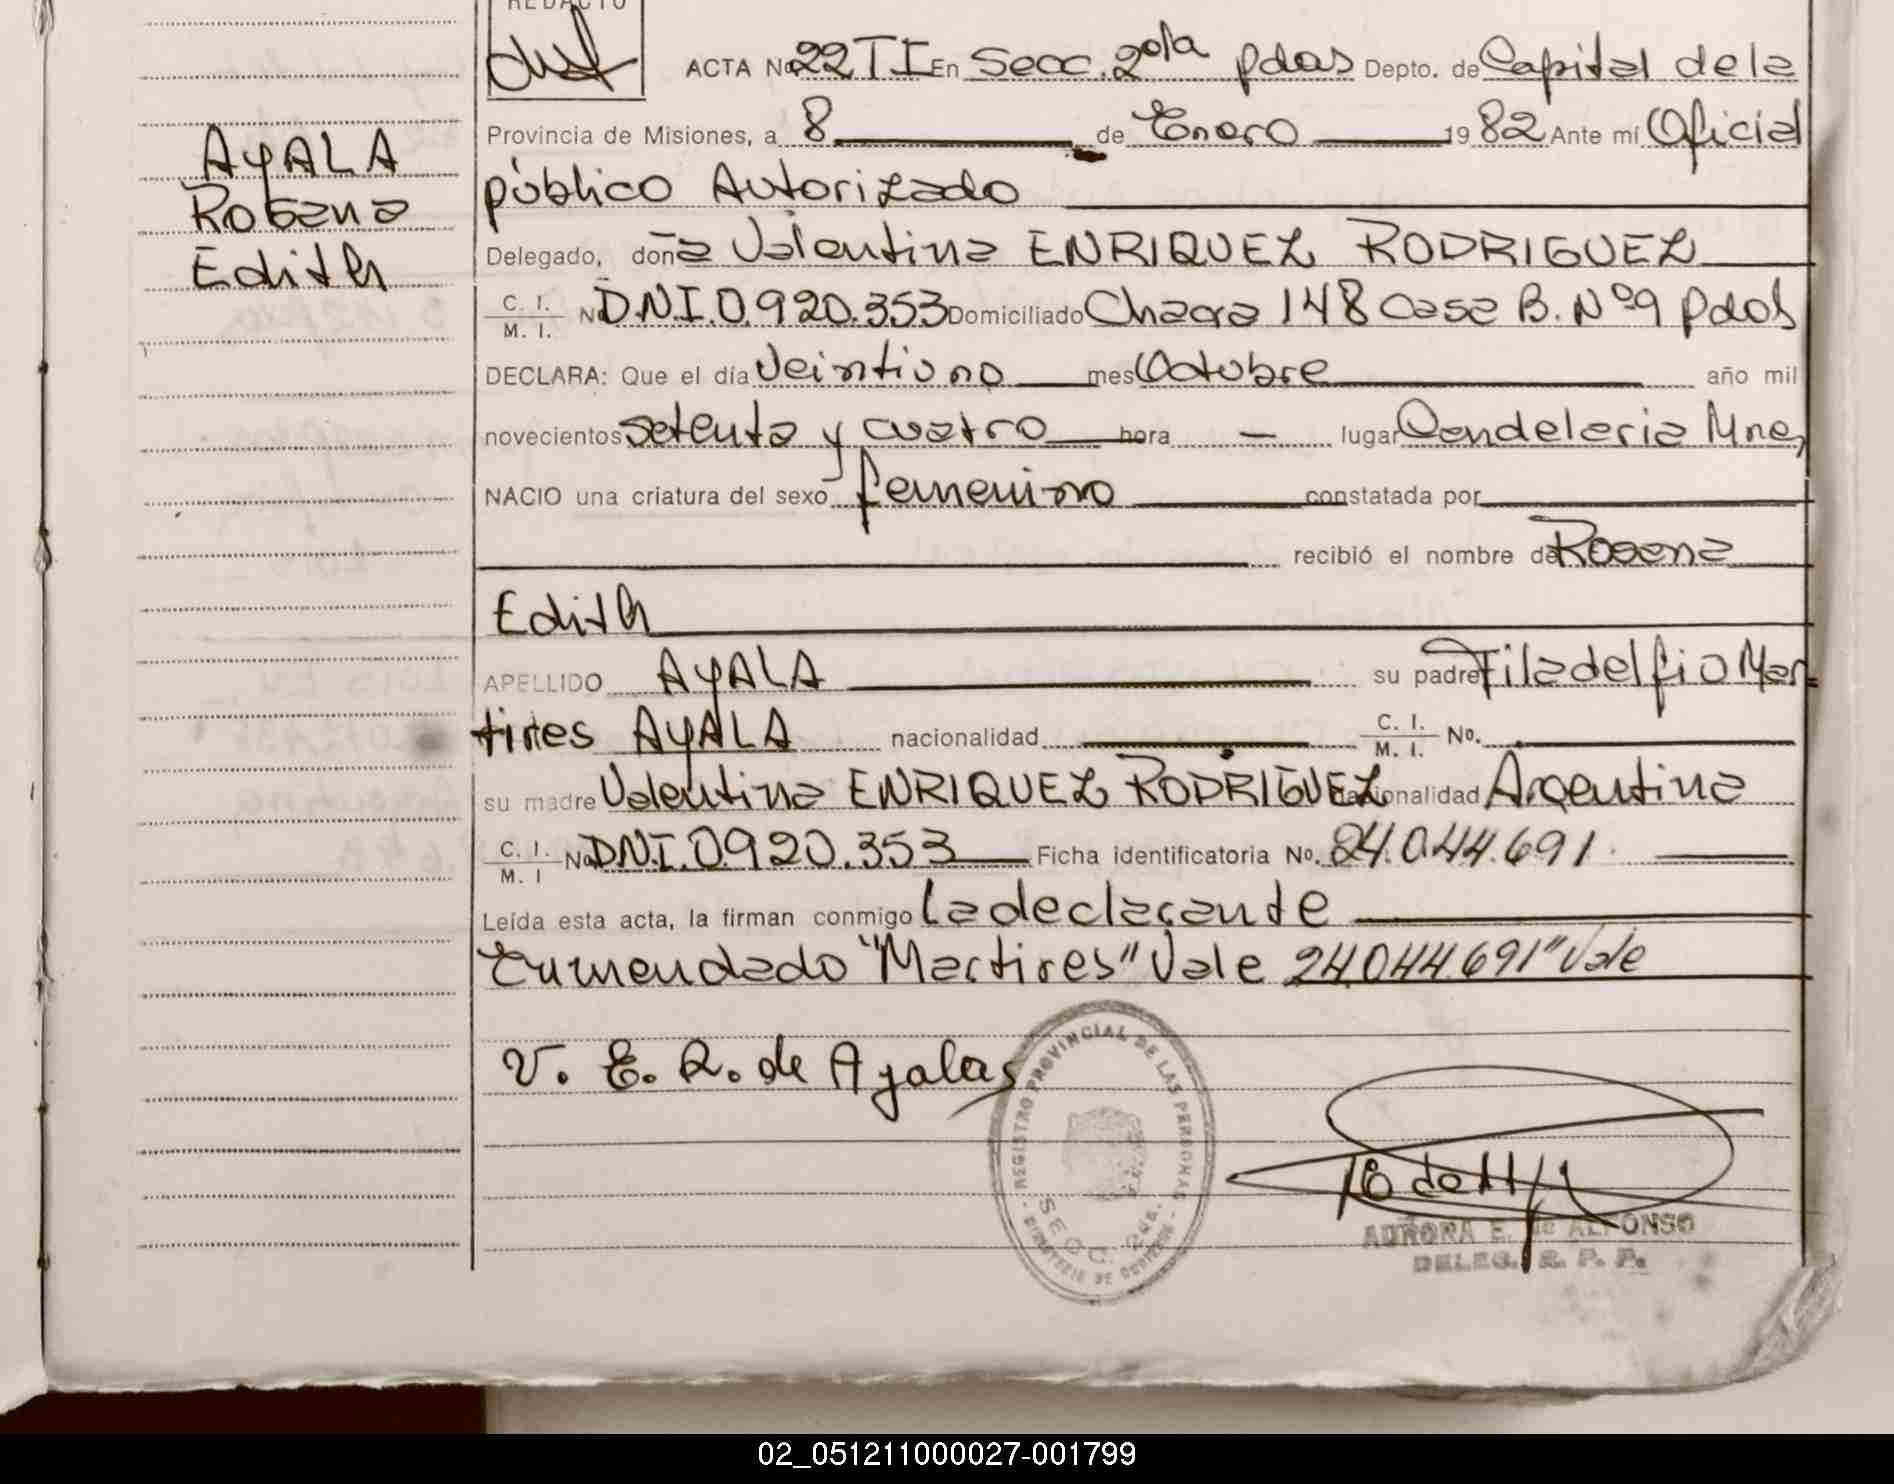 REDACTO
ACTA No 22 TI En Secc. 2º/a pdas Depto. de Capital de la
Provincia de Misiones, a 8 de Enero 1982 Ante mí Oficial
público Autorizado
Delegado, doña Valentina ENRIQUEZ RODRIGUEZ
C. I.
M. I. No D.N.I.0.920.353 Domiciliado Chacra 148 Casa B. Nº9 Pdas
DECLARA: Que el día Veintiuno mes Octubre año mil
novecientos setenta y cuatro hora — lugar Candelaria Mnes
NACIO una criatura del sexo femenino constatada por
recibió el nombre de Rosana
Edith
APELLIDO AYALA su padre Filadelfio Mar
tires AYALA nacionalidad C. I.
M. I. No.
su madre Valentina ENRIQUEZ RODRIGUEZ nacionalidad Argentina
C. I.
M. I No DNI.0.920.353 Ficha identificatoria No. 24.044.691.
Leída esta acta, la firman conmigo La declarante
Enmendado "Martires" Vale 24.044.691" Vale
V. E. R. de Ayala
AYALA
Rosana
Edith
REGISTRO PROVINCIAL DE LAS PERSONAS
MINISTERIO DE GOBIERNO
SECC. 2da.
AURORA E. de ALFONSO
DELEG. R. P. P.
02_051211000027-001799